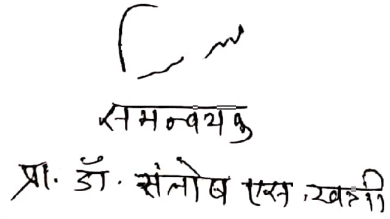 समन्वयक
प्रा. डॉ. संतोष एस. खत्री